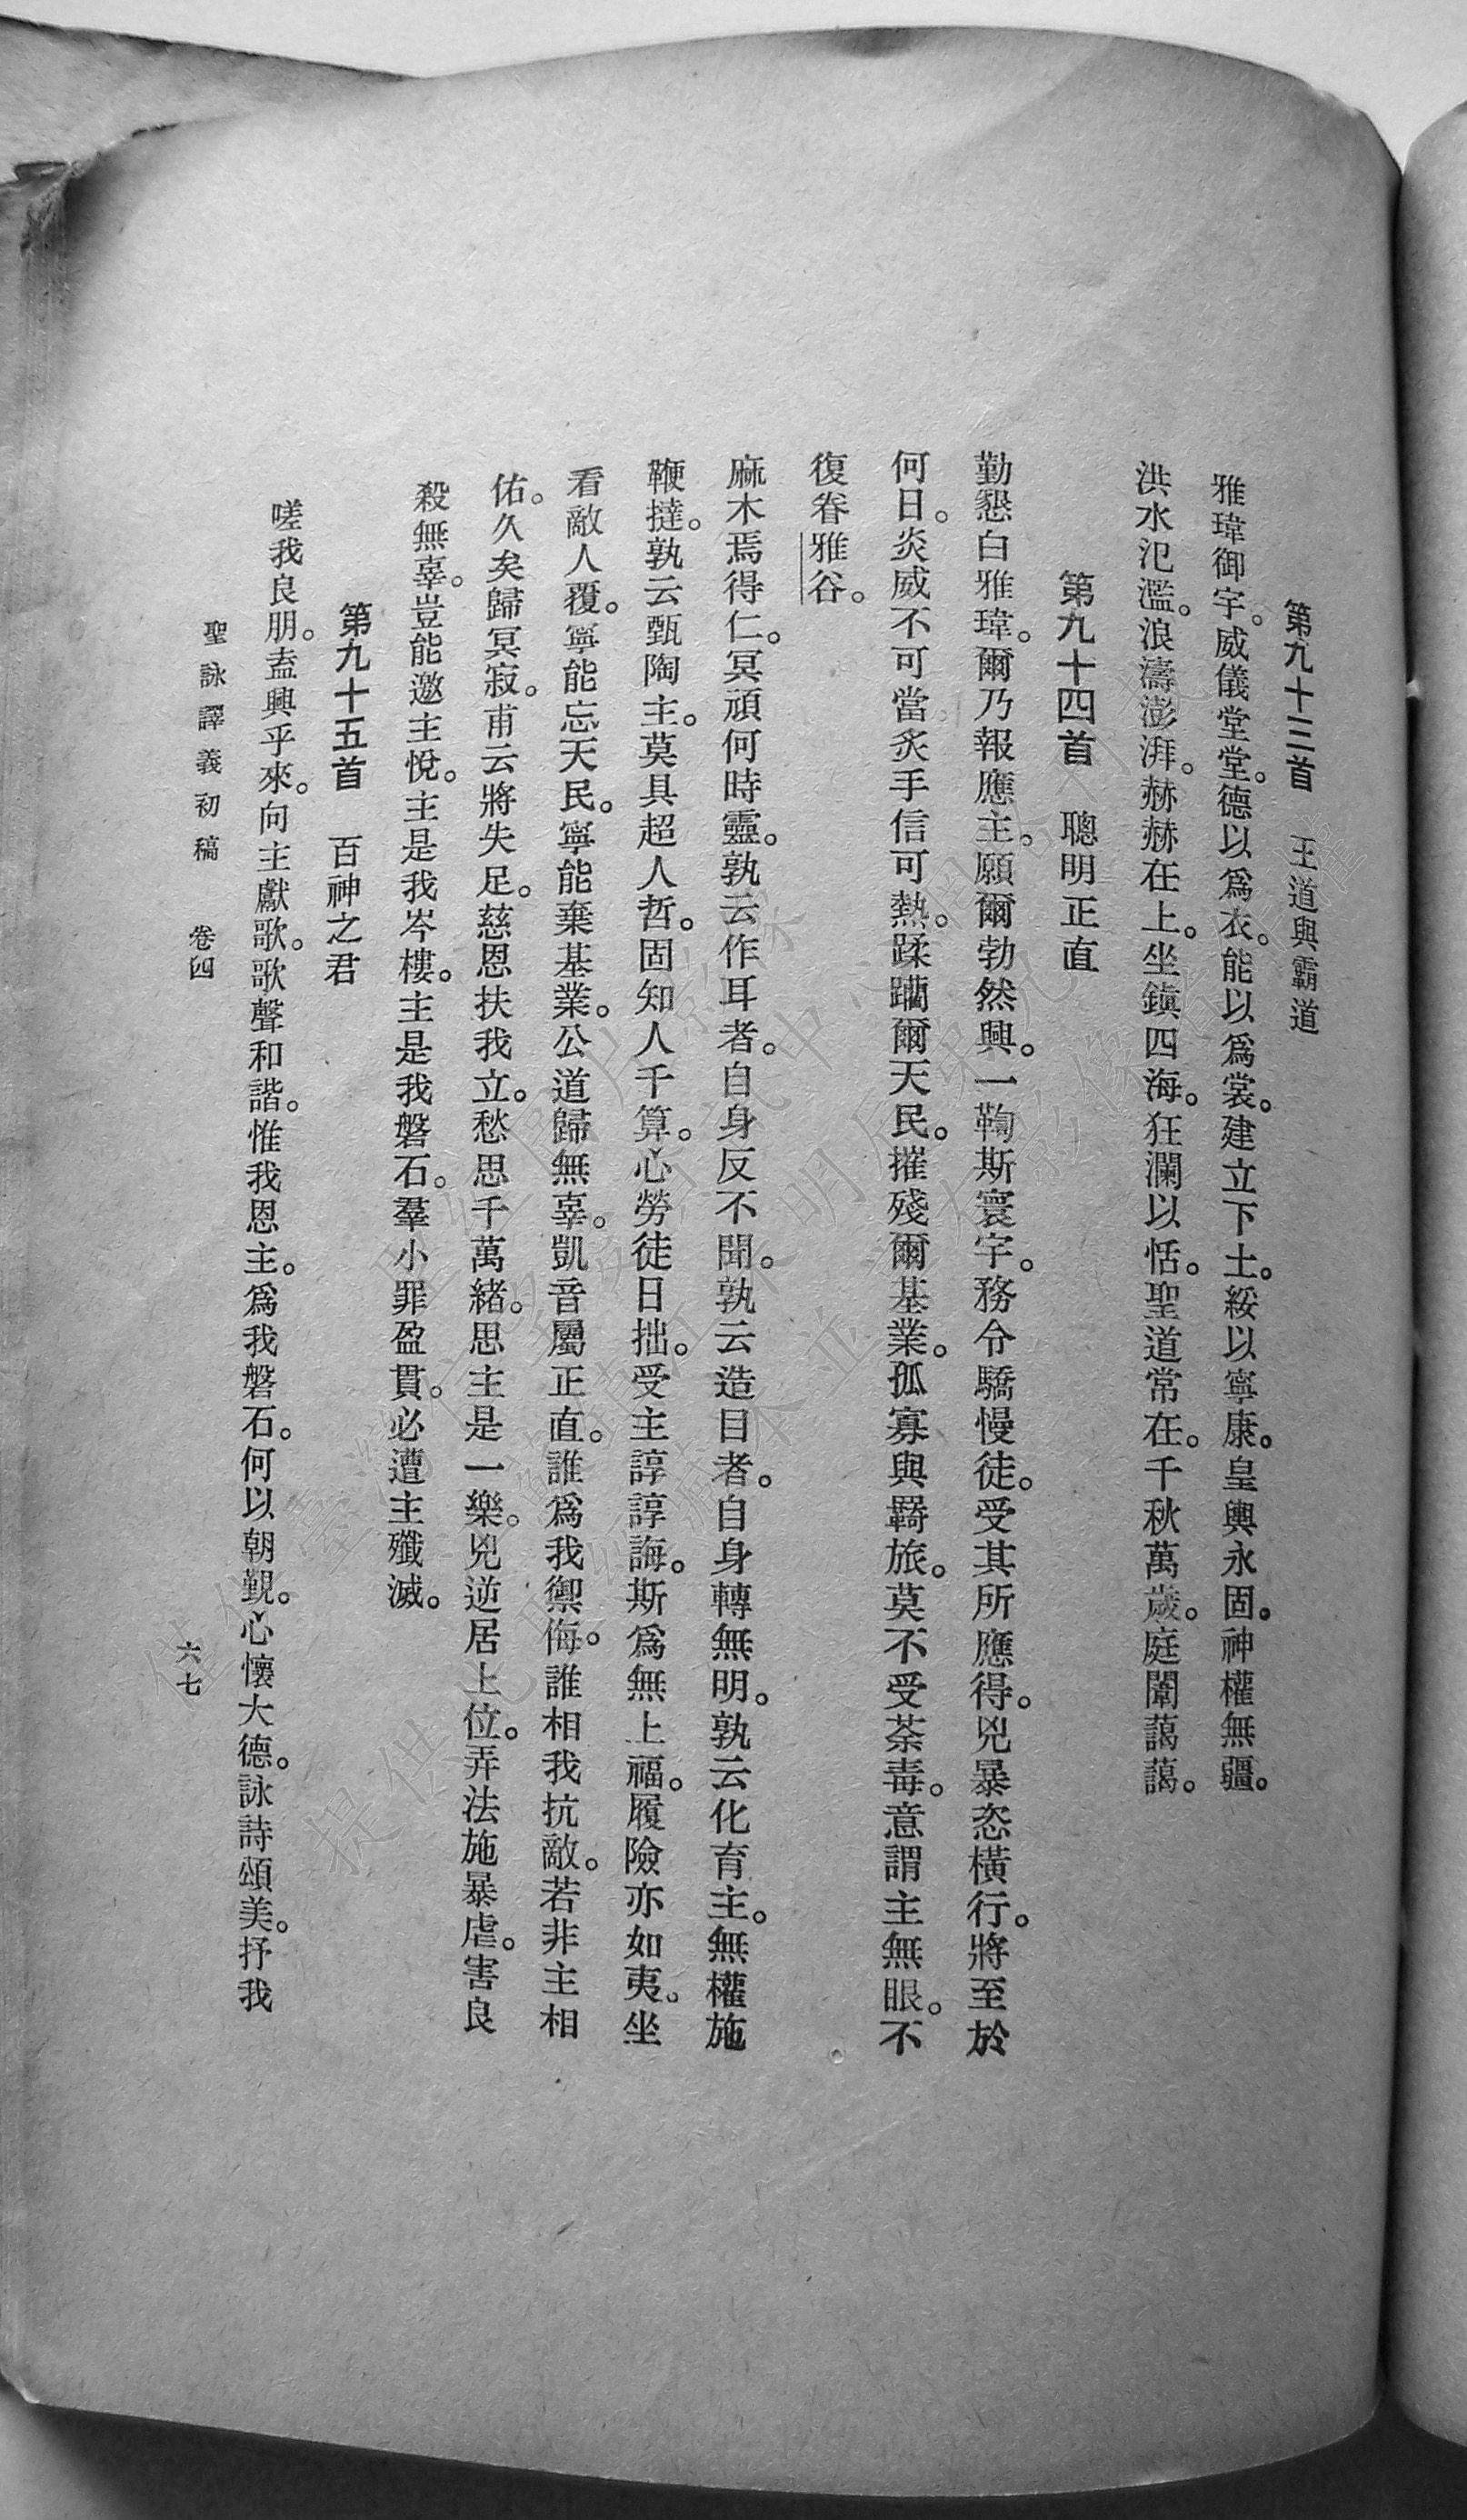 第九十三首　王道與霸道
雅瑋御宇。威儀堂堂。德以爲衣。能以爲裳。建立下土。綏以寧康。皇輿永固。神權無疆。
洪水氾濫。浪濤澎湃。赫赫在上。坐鎭四海。狂瀾以恬。聖道常在。千秋萬歲。庭闈藹藹。
第九十四首　聰明正直
勤懇白雅瑋。爾乃報應主。願爾勃然興。一鞫斯寰宇。務令驕慢徒。受其所應得。兇暴恣橫行。將至於
何日。炎威不可當。炙手信可熱。蹂躪爾天民。摧殘爾基業。孤寡與羇旅。莫不受荼毒。意謂主無眼。不
復眷雅谷。
麻木焉得仁。冥頑何時靈。孰云作耳者。自身反不聞。孰云造目者。自身轉無明。孰云化育主。無權施
鞭撻。孰云甄陶主。莫具超人哲。固知人千算。心勞徒日拙。受主諄諄誨。斯爲無上福。履險亦如夷。坐
看敵人覆。寧能忘天民。寧能棄基業。公道歸無辜。凱音屬正直。誰爲我禦侮。誰相我抗敵。若非主相
佑。久矣歸冥寂。甫云將失足。慈恩扶我立。愁思千萬緒。思主是一樂。兇逆居上位。弄法施暴虐。害良
殺無辜。豈能邀主悅。主是我岑樓。主是我磐石。羣小罪盈貫。必遭主殲滅。
第九十五首　百神之君
嗟我良朋。盍興乎來。向主獻歌。歌聲和諧。惟我恩主。爲我磐石。何以朝覲。心懷大德。詠詩頌美。抒我
聖詠譯義初稿　卷四
六七